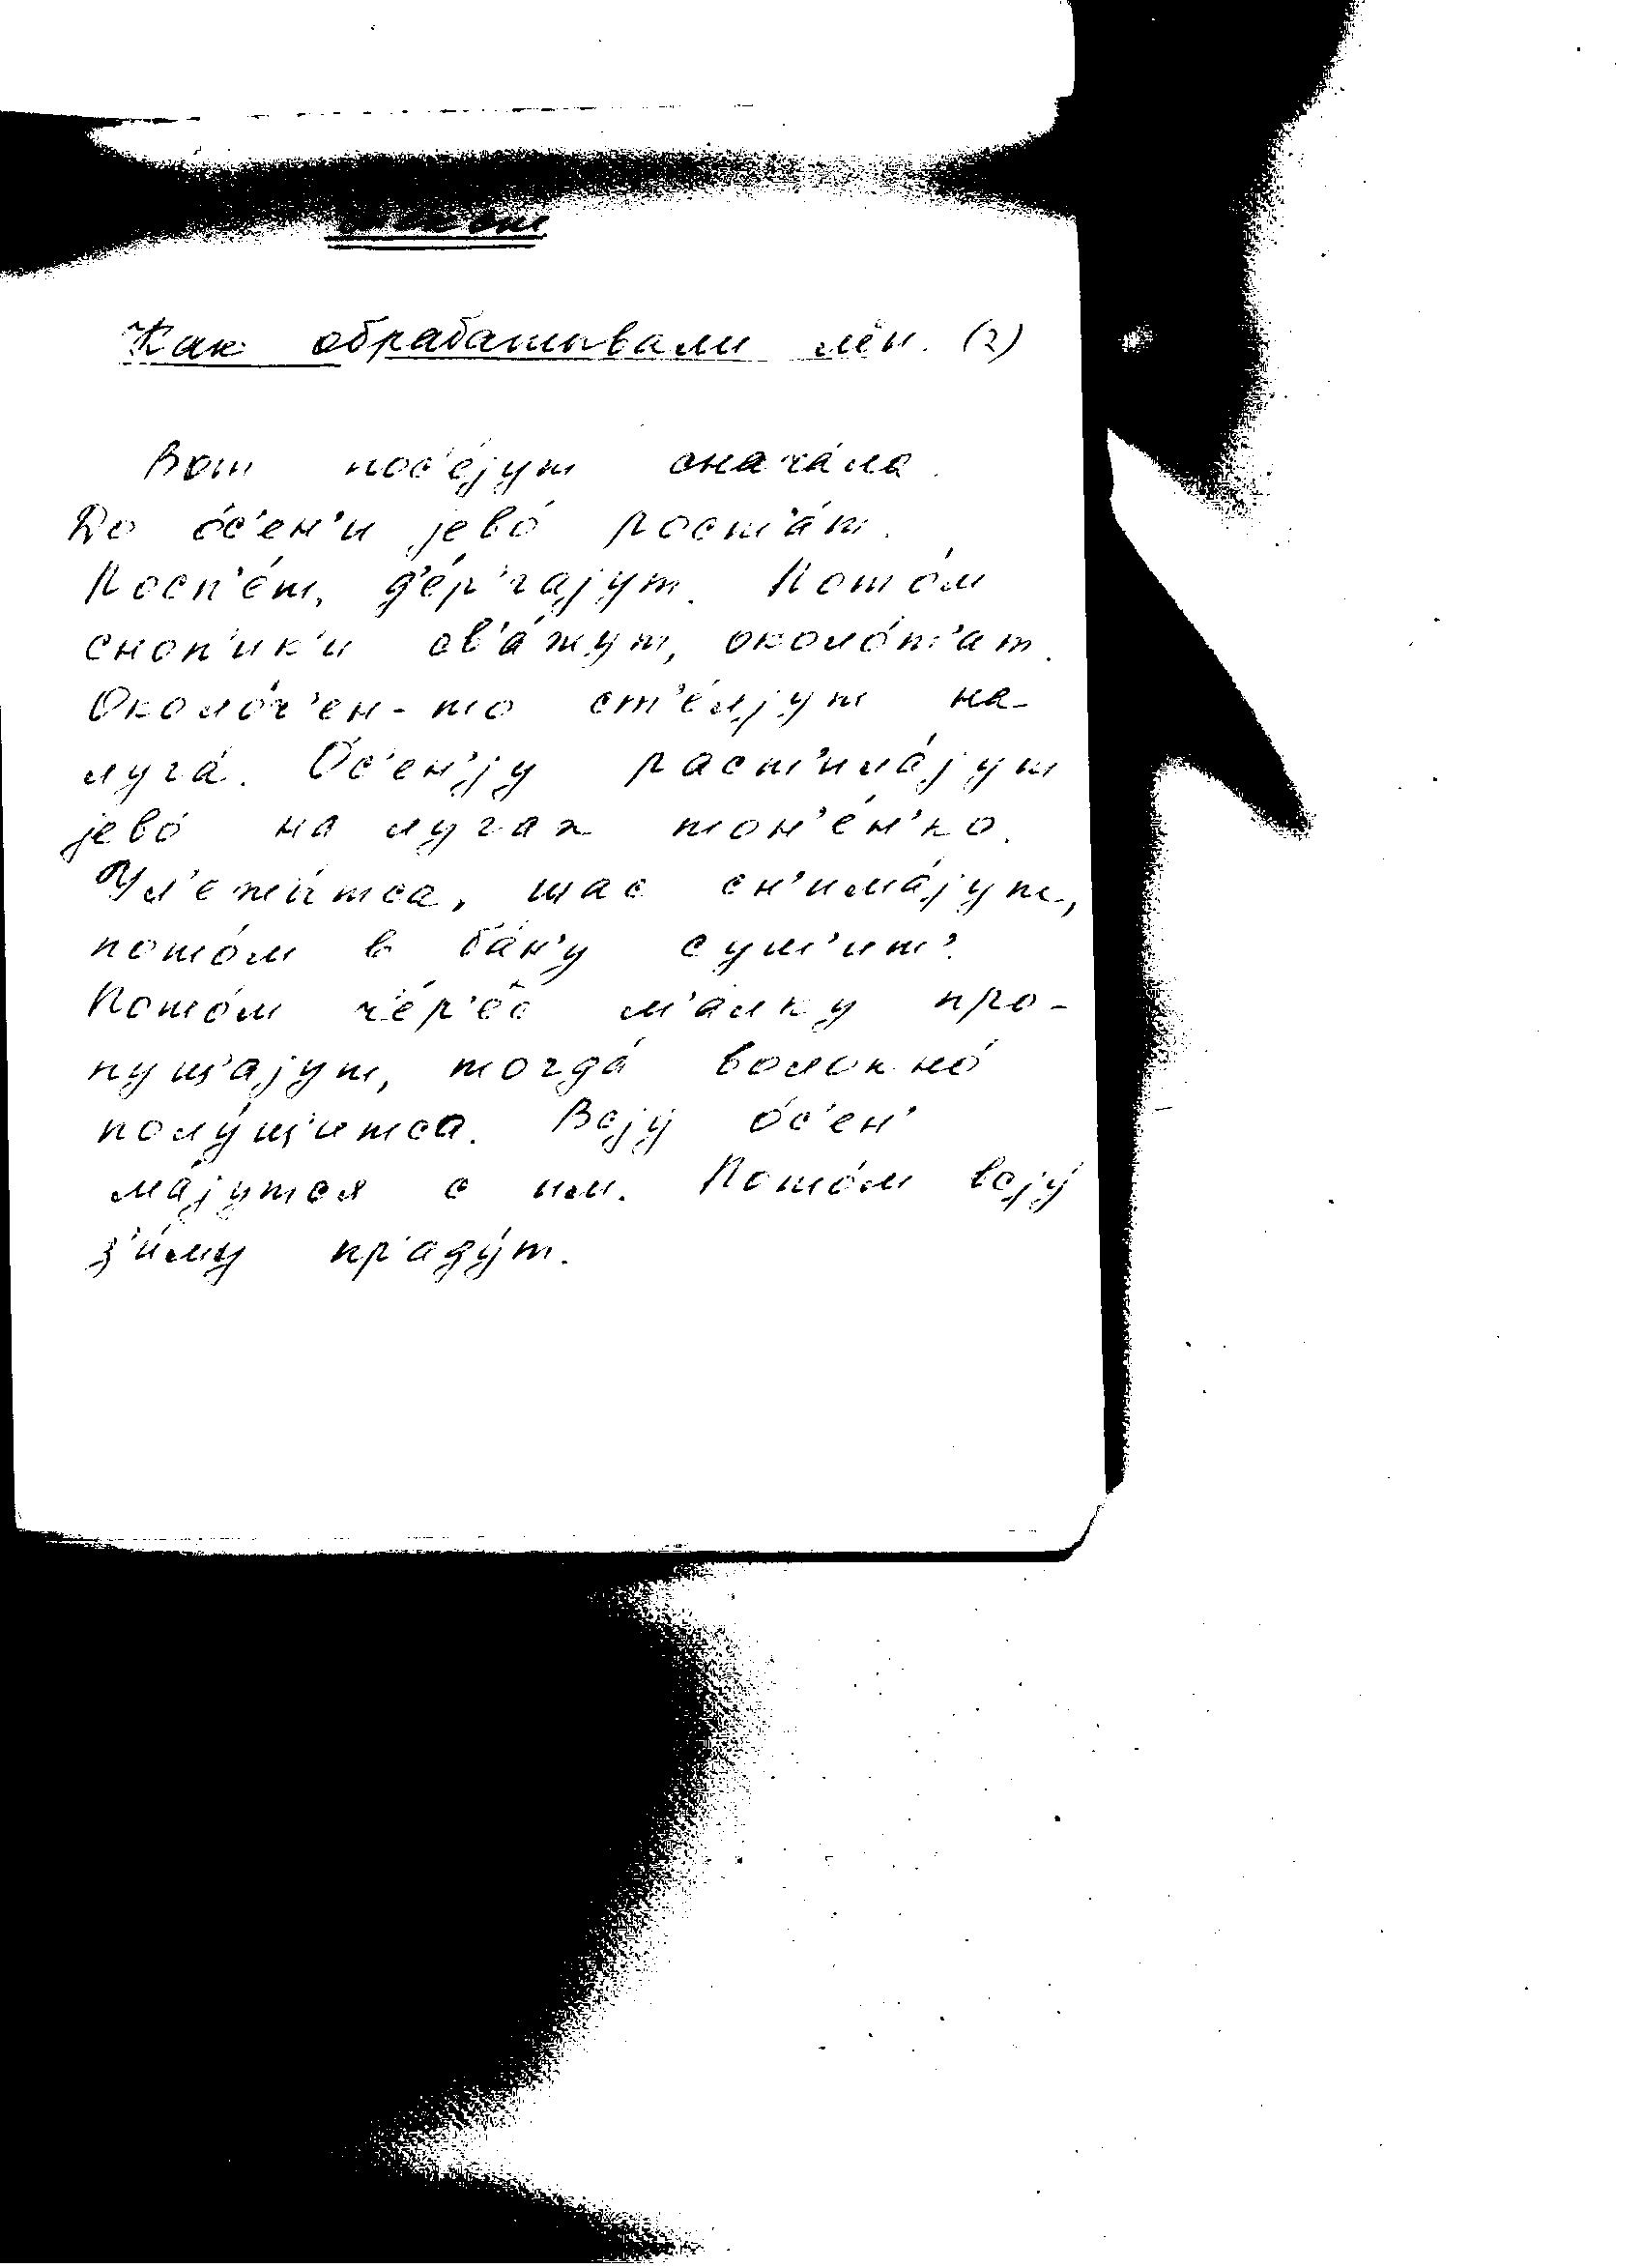 Как обрабатывали лён. (2)
Вот пос'éјут снача́ла.
До о́с'ен'и јево́ рост'а́т.
Посп'éт, д'éр'гајут. Пото́м
сноп'ик'и св'а́жут, околóт'ат.
Околóч'ен-то ст'éлјут на-
луга́. О́с'ен'ју раст'ила́јут
јево́ на лугах тон'éн'ко.
Ул'ежи́тса, шас сн'има́јут,
пото́м в ба́н'у суш'ит'.
Пото́м ч'éр'ес м'а́лку про-
пущ'ајут, тогда́ волокно́
полу́щ'итса. Всју о́с'ен'
ма́јутся с им. Пото́м всју́
з'и́му пр'аду́т.